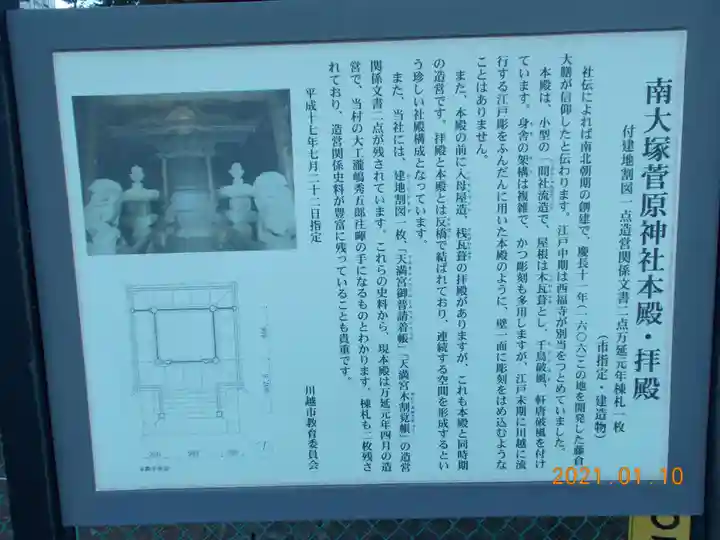 南大塚菅原神社本殿・拝殿
付建地割図一点造営関係文書二点万延元年棟札一枚
(市指定・建造物)
社伝によれば南北朝期の創建で、慶長十一年(一六〇六)この地を開発した藤倉
大膳が信仰したと伝わります。江戸中期は西福寺が別当をつとめていました。
本殿は、小型の一間社流造で、屋根は木瓦葺とし、千鳥破風、軒唐破風を付け
ています。身舎の架構は複雑で、かつ彫刻も多用しますが、江戸末期に川越に流
行する江戸彫をふんだんに用いた本殿のように、壁一面に彫刻をはめ込むような
ことはありません。
また、本殿の前に入母屋造、桟瓦葺の拝殿がありますが、これも本殿と同時期
の造営です。拝殿と本殿とは反橋で結ばれており、連続する空間を形成するとい
う珍しい社殿構成となっています。
また、当社には、建地割図一枚、「天満宮御普請着帳」「天満宮木割覚帳」の造営
関係文書二点が残されています。これらの史料から、現本殿は万延元年四月の造
営で、当村の大工瀧嶋秀五郎注暉の手になるものとわかります。棟札も二枚残さ
れており、造営関係史料が豊富に残っていることも貴重です。
平成十七年七月二十二日指定
川越市教育委員会
2021.01.10